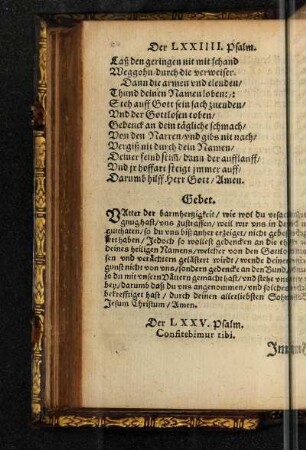 Der LXXIIII. Psalm.
Laß den geringen nit mit schand
Weggohn/durch die verweiser.
Dann die armen vnd elenden/
Thund deinen Namen loben:/:
Steh auff Gott sein sach zuenden/
Vnd der Gottlosen toben/
Gedenck an dein tägliche schmach/
Von den Narren/vnd gibs nit nach/
Vergiß nit durch dein Namen/
Deiner feind stim̃/ dann der aufflauff/
Vnd jr hoffart steigt jmmer auff/
Darumb hilff Herr Gott / Amen.
Gebet.
VAtter der barmhertzigkeit / wie wol du vrsach
gnug hast/ vns zustraffen/ weil wir vns in den
gutthaten/ so du vns biß anher erzeiget / nicht
haben / Jedoch so wöllest gedencken an die
deines heiligen Namens/welcher von den Gottlo
vnd verächtern gelästert wirde / wende deine
gunst nicht von vns/sondern gedencke an den Bund/
so du mit vnsern Vättern gemacht hast/ vnd stehe vns
bey/ darumb daß du vns angenommen/ vnd solches
bekrefftiget hast / durch deinen allerliebsten Sohn
Jesum Christum / Amen.
Der LXXV. Psalm.
Confitebimur tibi.